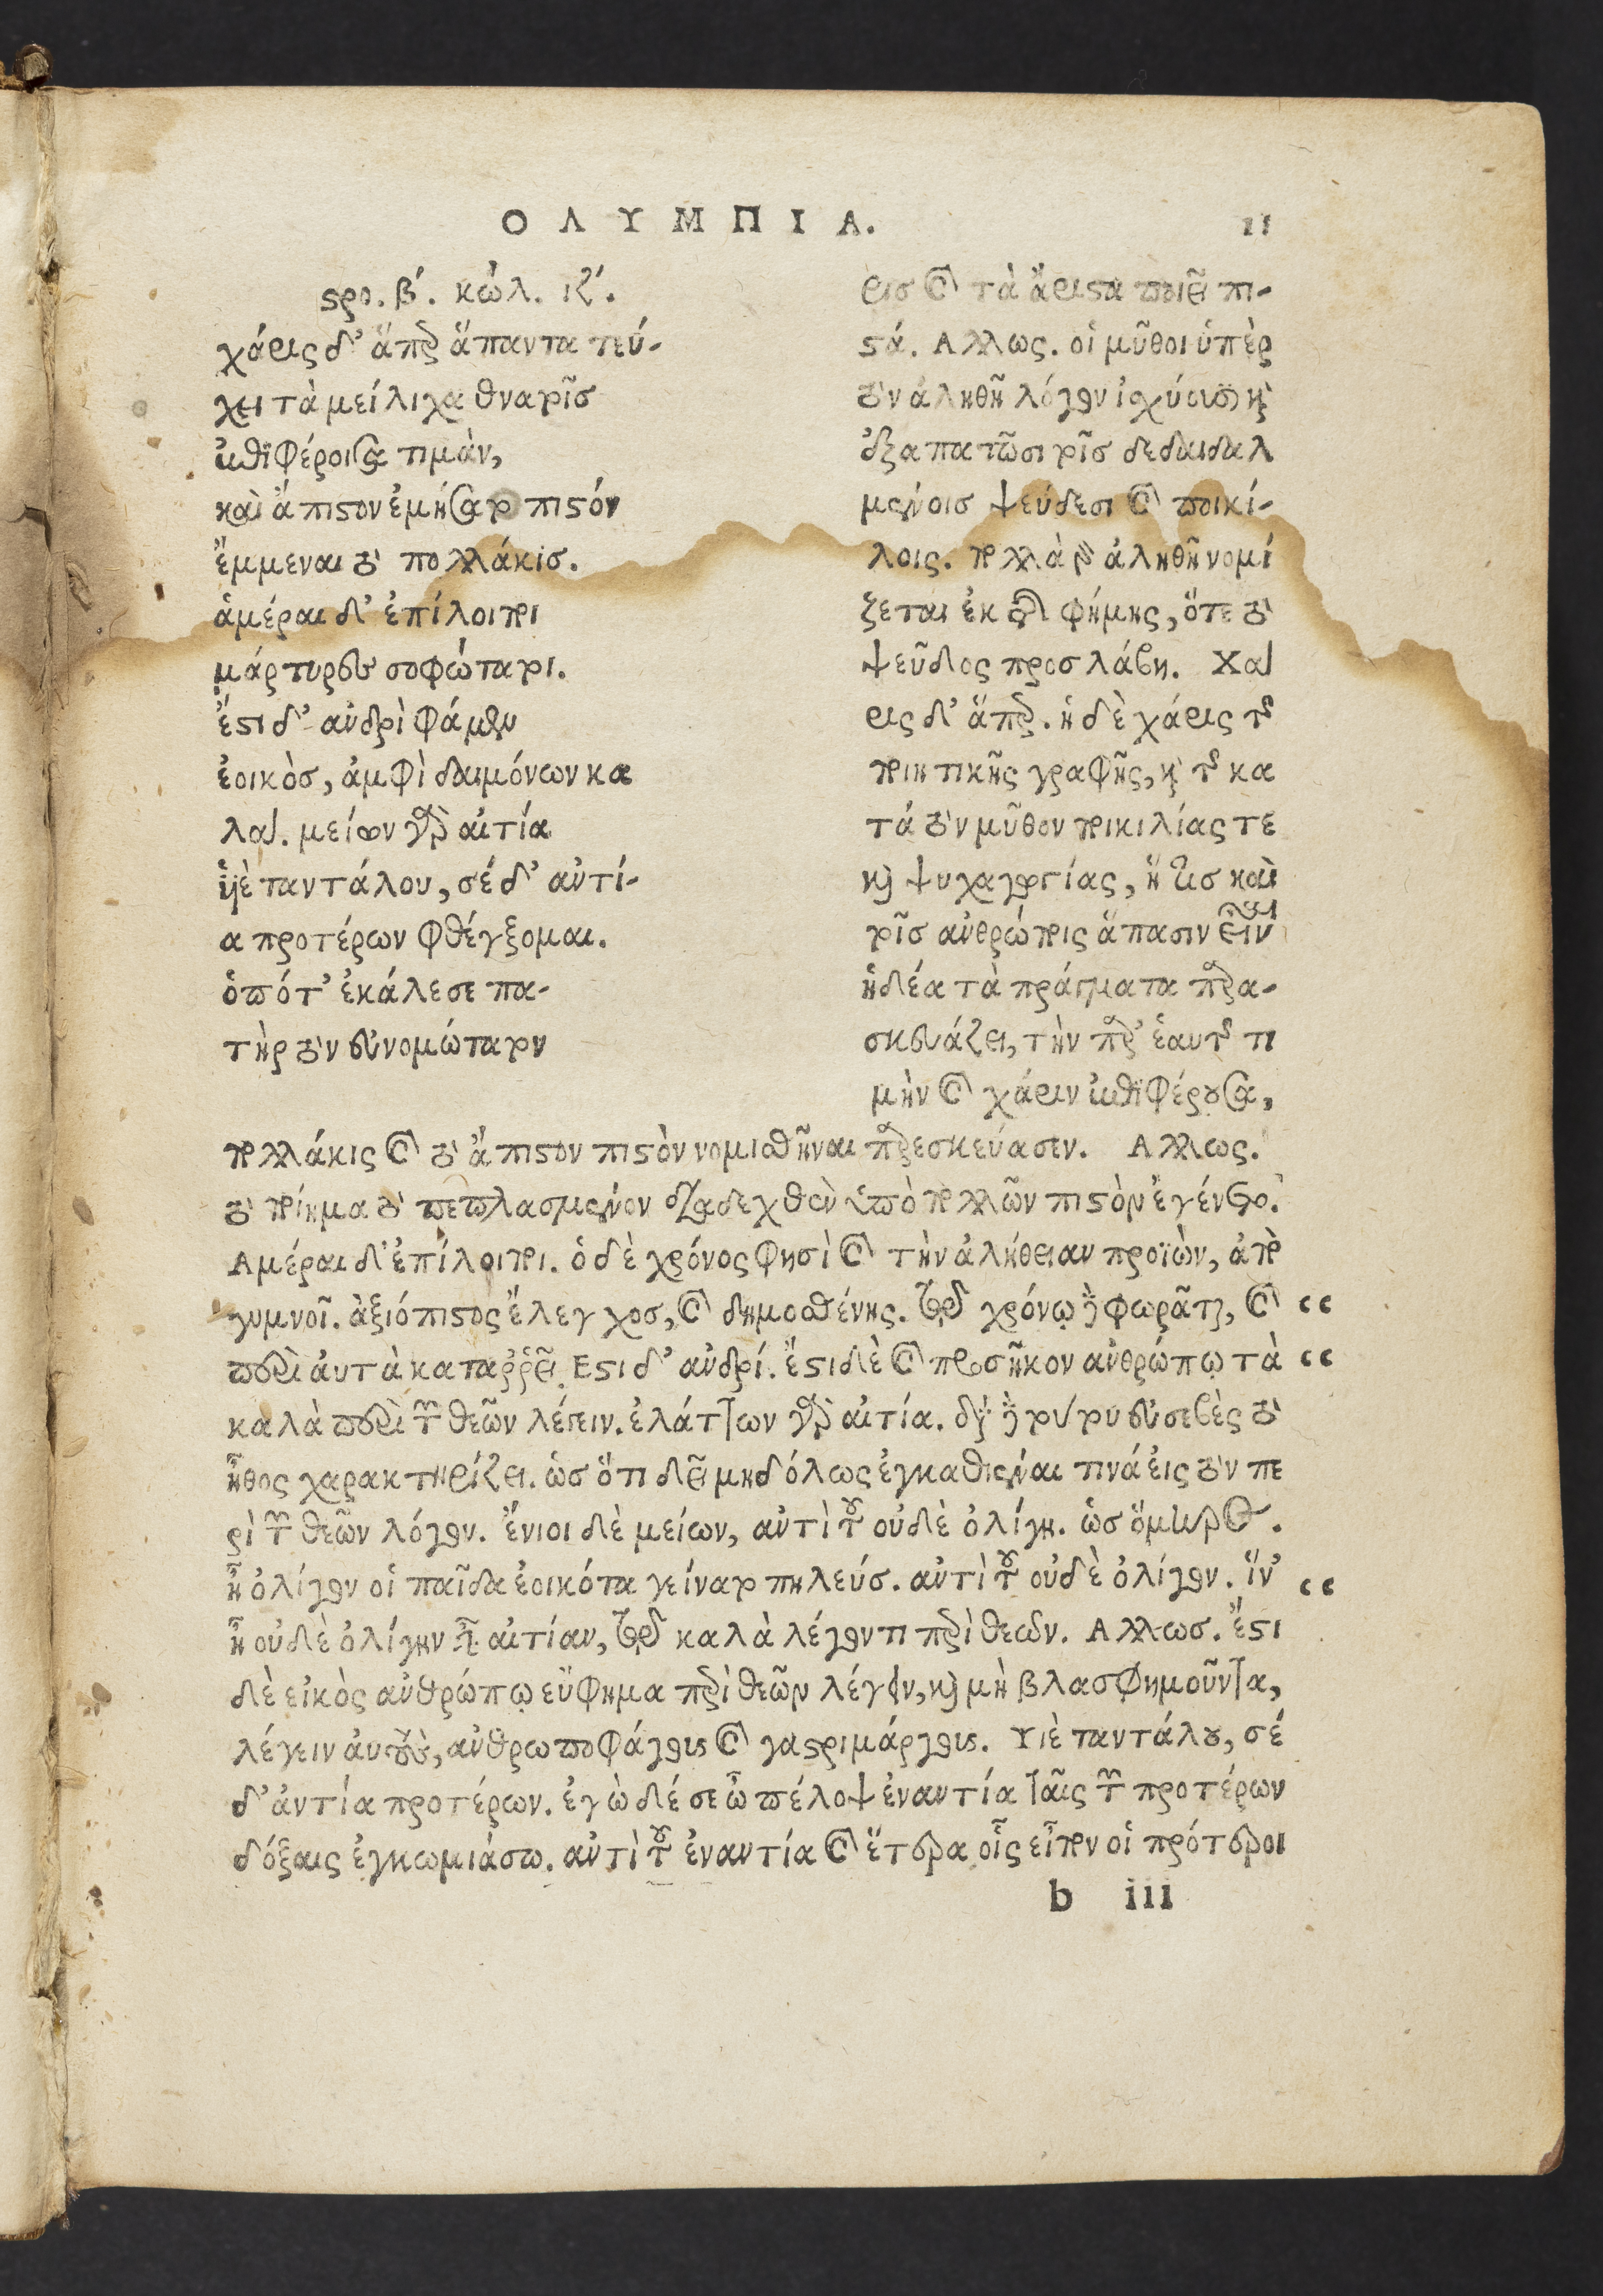 ΟΛΥΜΠΙΑ. 11
στρο. β΄. κώλ. ιζ΄.
χάρις δ' ἅπερ ἅπαντα τεύ-
χει τὰ μείλιχα θνατοῖσ
ἐπιφέροισα τιμὰν,
καὶ ἄπιστον ἐμήσατο πιστόν
ἔμμεναι τὸ πολλάκισ.
ἁμέραι δ' ἐπίλοιποι
μάρτυρες σοφώτατοι.
ἔστι δ' ἀνδρὶ φάμεν
ἐοικὸσ, ἀμφὶ δαιμόνων κα
λά. μείων γὰρ αἰτία
ὑιὲ ταντάλου, σέ δ' ἀντί-
α προτέρων φθέγξομαι.
ὁπότ' ἐκάλεσε πα-
τὴρ τὸν εὐνομώτατον
ρισ καὶ τὰ ἄριστα ποιεῖ πι-
στά. Αλλως. οἱ μῦθοι ὑπὲρ
τὸν ἀληθῆ λόγον ἰσχύουσι καὶ
ἐξαπατῶσι τοῖσ δεδαιδαλ
μένοισ ψεύδεσι καὶ ποικί-
λοις. πολλὰ γὰρ ἀληθῆ νομί
ζεται ἐκ τῆς φήμης, ὅτε τὸ
ψεῦδος προσλάβη. Χά
ρις δ' ἅπερ. ἡ δὲ χάρις τοῦ
ποιητικῆς γραφῆς, καὶ τοῦ κα
τά τὸν μῦθον ποικιλίας τε
καὶ ψυχαγωγίας, ἥ τισ καὶ
τοῖσ ἀνθρώποις ἅπασιν εἶναι
ἡδέα τὰ πράγματα παρα-
σκευάζει, τὴν παρ' ἑαυτοῦ τι
μὴν καὶ χάριν ἐπιφέρουσα,
πολλάκις καὶ τὸ ἄπιστον πιστὸν νομισθῆναι παρεσκεύασεν. Αλλως.
τὸ ποίημα τὸ πεπλασμένον διαδεχθὲν ὑπὸ πολλῶν πιστὸν ἐγένετο.
Αμέραι δ' ἐπίλοιποι. ὁ δὲ χρόνος φησὶ καὶ τὴν ἀλήθειαν προϊὼν, ἀπο
γυμνοῖ. ἀξιόπιστος ἔλεγχοσ, καὶ δημοσθένης. τῷ δὲ χρόνῳ γε φωρᾶται, καὶ “
περὶ ἀυτὰ καταῤῥεῖ. Εστι δ' ἀνδρί. ἔστι δὲ καὶ προσῆκον ἀνθρώπῳ τὰ “
καλὰ περὶ τῶν θεῶν λέγειν. ἐλάττων γὰρ αἰτία. διὰ γε τούτου εὐσεβὲς τὸ
ἦθος χαρακτηρίζει. ὡσ ὅτι δεῖ μηδόλως ἐγκαθιέναι τινά εἰς τὸν πε
ρὶ τῶν θεῶν λόγον. ἔνιοι δὲ μείων, ἀντὶ τοῦ οὐδὲ ὀλίγη. ὡσ ὅμηρος.
ἦ ὀλίγον οἱ παῖδα ἐοικότα γείνατο πηλεύσ. ἀντὶ τοῦ οὐδὲ ὀλίγον. ἵν' “
ἦ οὐδὲ ὀλίγην αἰτίαν, τῷ καλὰ λέγοντι περὶ θεῶν. Αλλωσ. ἔστι
δὲ εἰκὸς ἀνθρώπῳ εὔφημα περὶ θεῶν λέγειν, καὶ μὴ βλασφημοῦντα,
λέγειν ἀυτοὺς, ἀνθρωποφάγους καὶ γαστριμάργους. Υιὲ ταντάλου, σέ
δ' ἀντία προτέρων. ἐγὼ δέ σε ὦ πέλοψ ἐναντία ταῖς τῶν προτέρων
δόξαις ἐγκωμιάσω. ἀντὶ τοῦ ἐναντία καὶ ἕτερα οἷς εἶπον οἱ πρότεροι
b iii